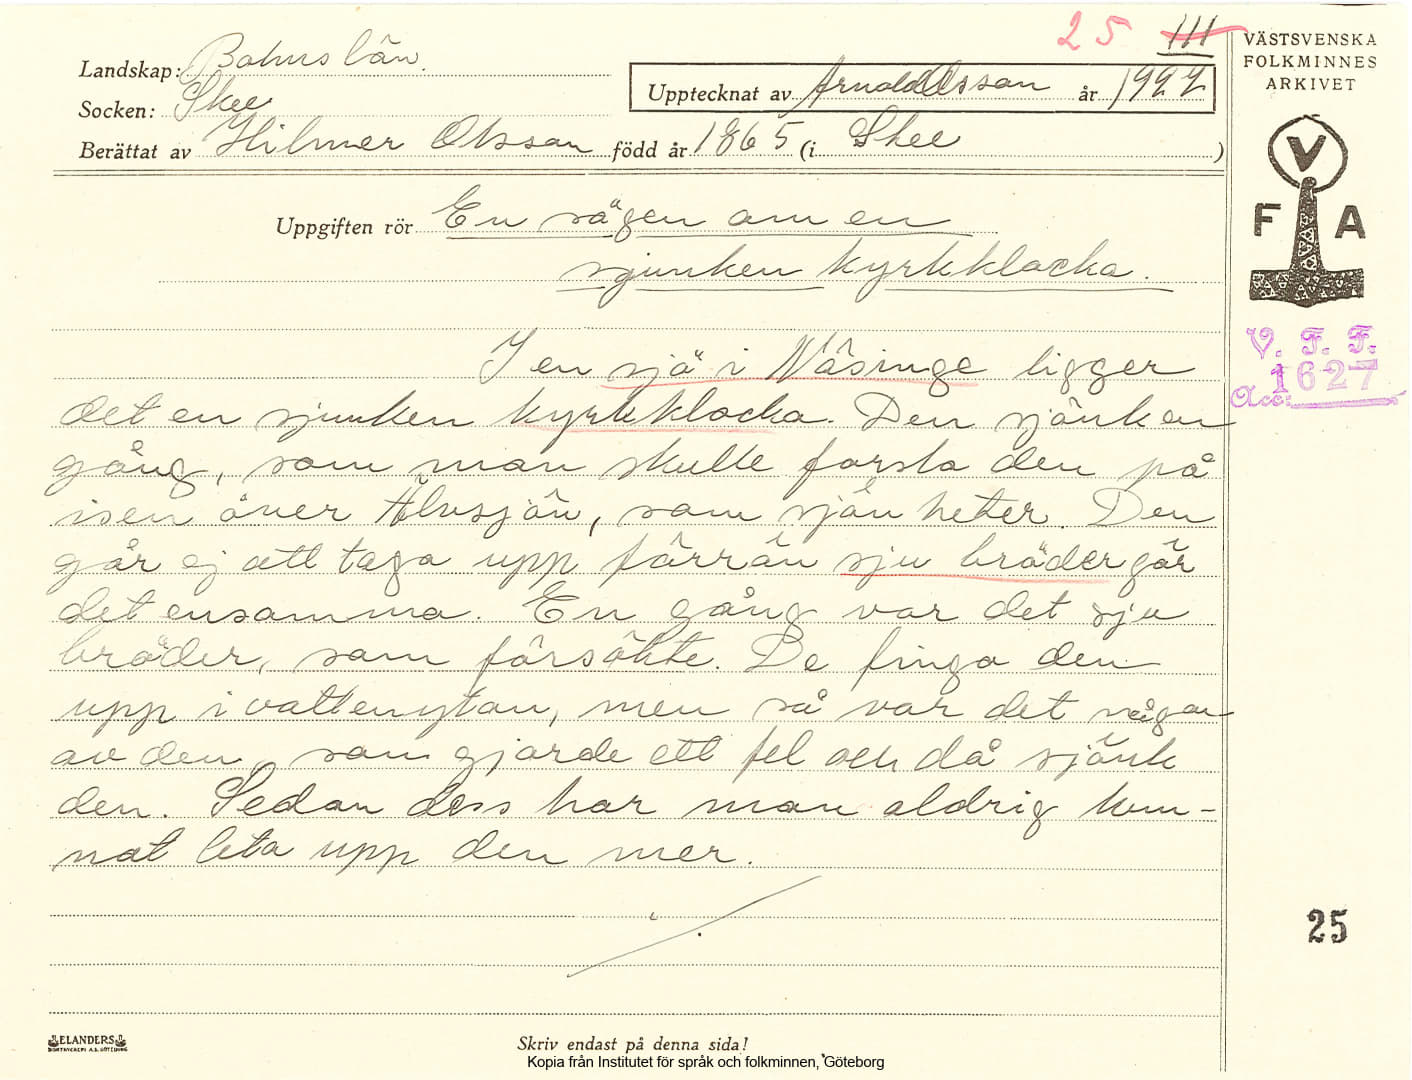 25 III
VÄSTSVENSKA
FOLKMINNES
ARKIVET
Landskap: Bohuslän.
Socken: Skee
Upptecknat av Arnold Olsson år 1927
Berättat av Hilmer Olsson född år 1865 (i Skee )
V
F A
Uppgiften rör En sägen om en
sjunken kyrkklocka.
V. F. F.
Acc: 1627
I en sjö i Näsinge ligger
det en sjunken kyrkklocka. Den sjönk en
gång, som man skulle forsla den på
isen över Älvsjön, som sjön heter. Den
går ej att taga upp förrän sju bröder gör
det ensamma. En gång var det sju
bröder, som försökte. De finga den
upp i vattenytan, men så var det någon
av den, som gjorde ett fel och då sjönk
den. Sedan dess har man aldrig kun-
nat leta upp den mer.
25
ELANDERS
BOKTRYCKERI A.B. GÖTEBORG
Skriv endast på denna sida!
Kopia från Institutet för språk och folkminnen, Göteborg